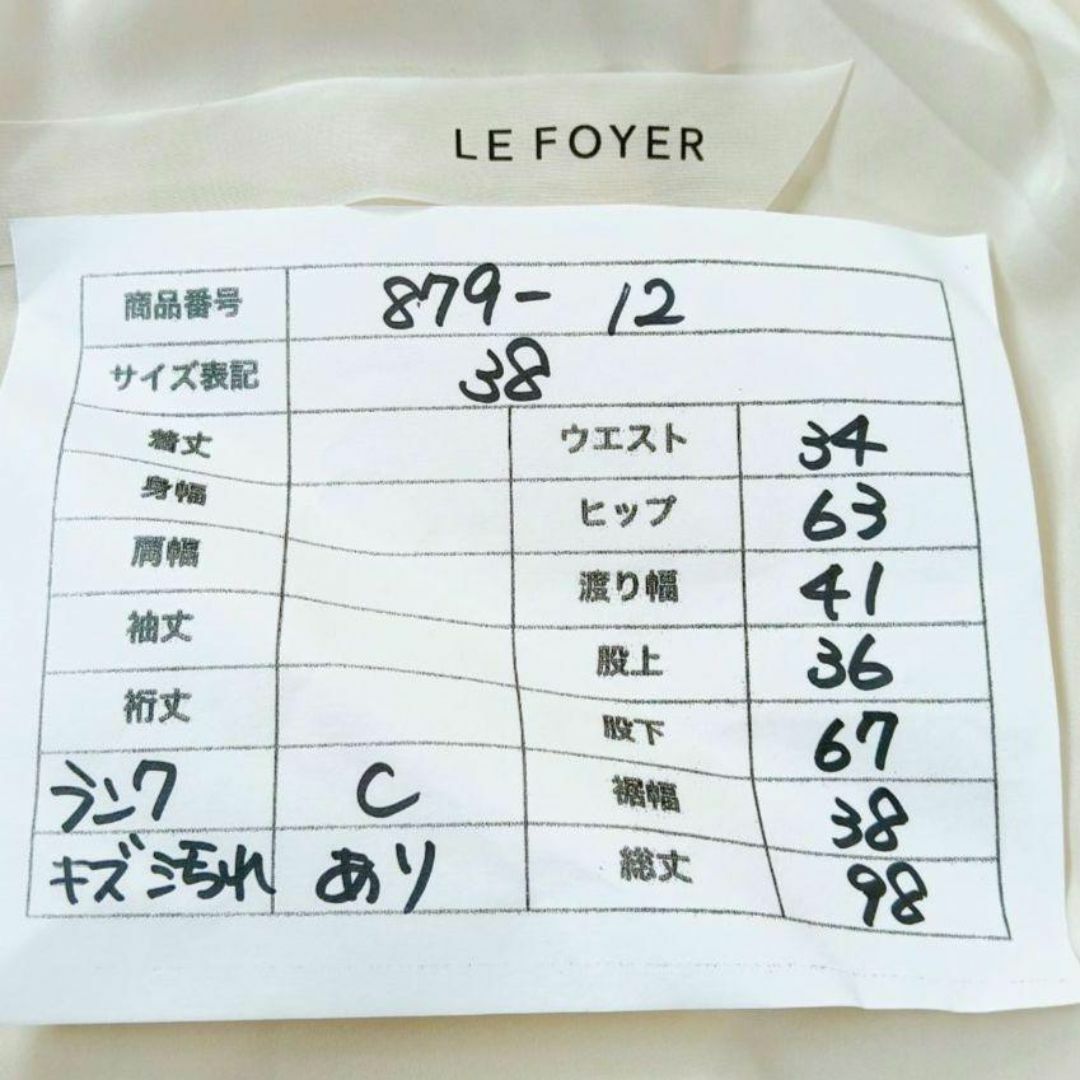 LE FOYER
商品番号 879- 12
サイズ表記 38
着丈 ウエスト 34
身幅 ヒップ 63
肩幅 渡り幅 41
袖丈 股上 36
裄丈 股下 67
ランク C 裾幅 38
キズ汚れ あり 総丈 98